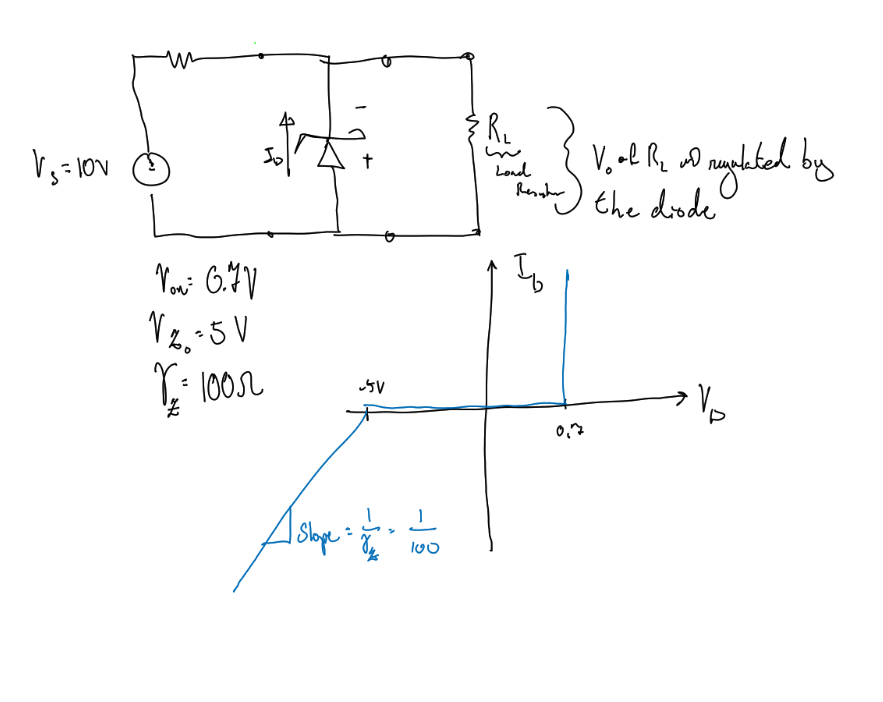 V_s = 10V
I_D
-
+
R_L
Load
Resistor
V_o at R_L is regulated by
the diode
V_on = 0.7V
V_Zo = 5V
r_z = 100Ω
I_D
-5V
V_D
0.7
Slope = 1/r_z = 1/100